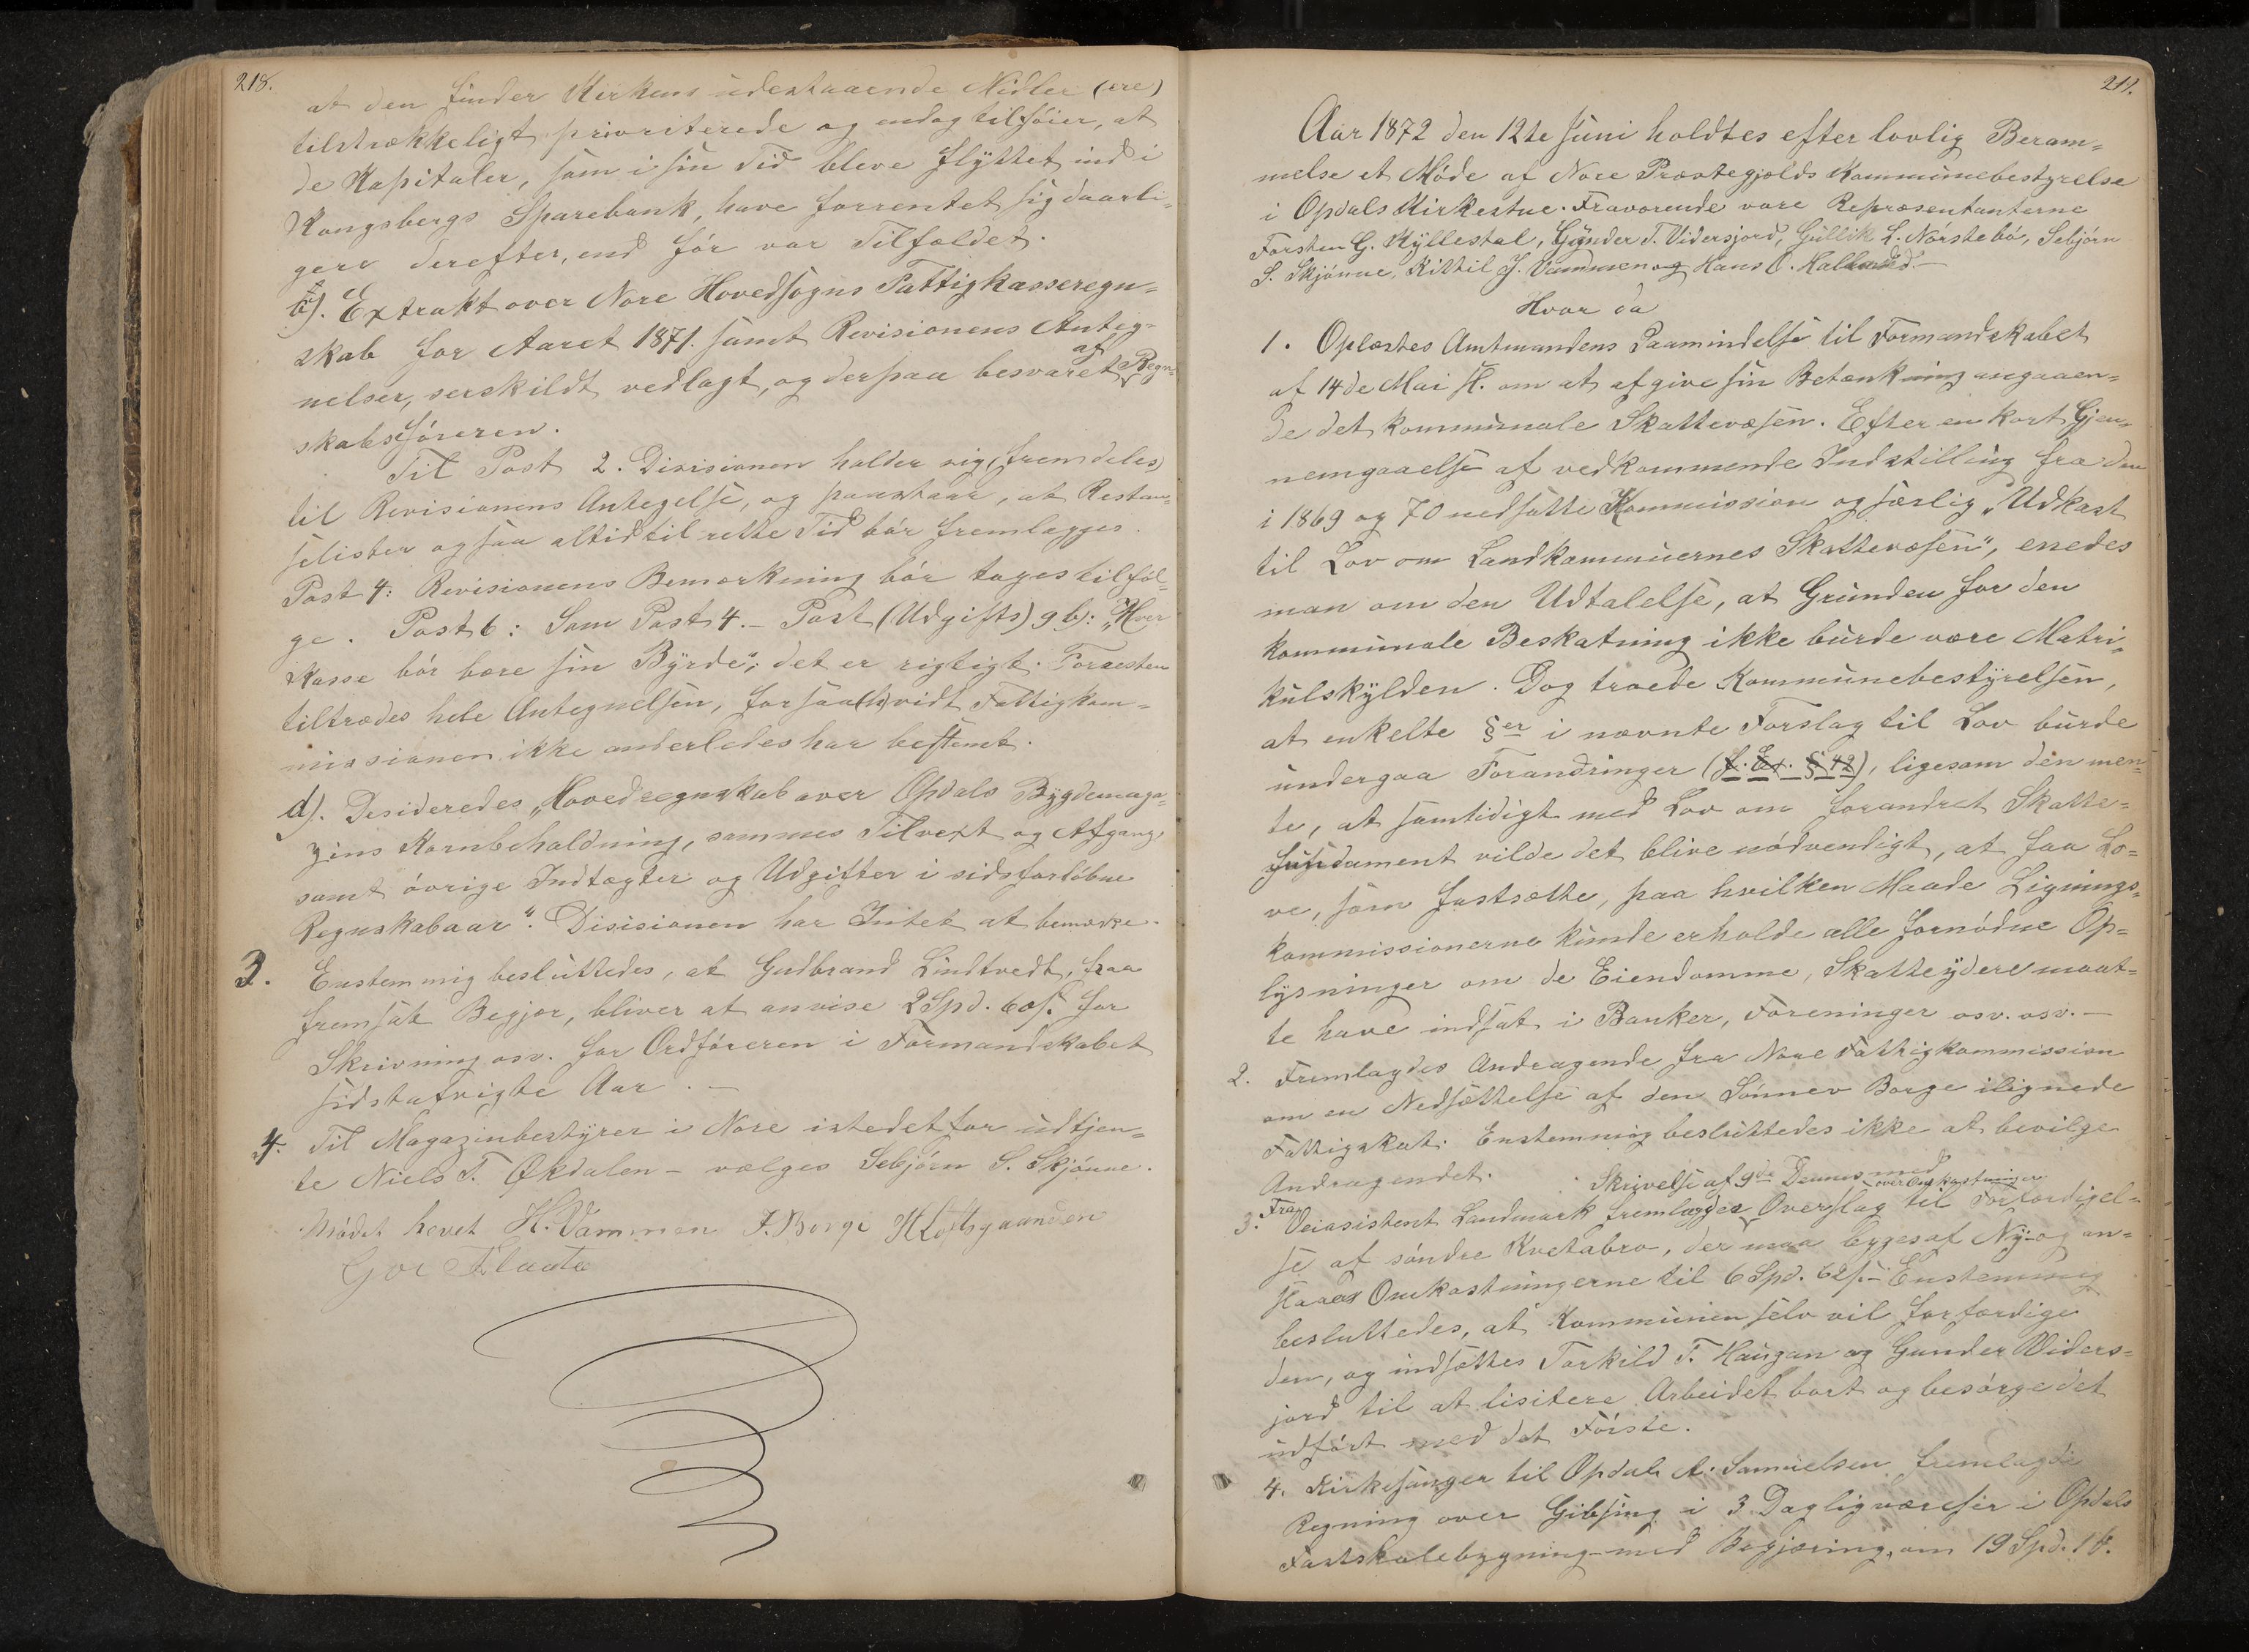 218.
at den finder Kirkens udestaaende Midler (ere)
tilstrækkeligt prioriterede og endog tilföier, at
de Kapitaler, som i sin Tid bleve flyttet ind i
Kongsbergs Sparebank, have forrentet sig daarli-
gere derefter, end för var Tilfældet.
c). Extrakt over Nore Hovedsogns Fattigkasseregn=
skab for Aaret 1871. samt Revisionens Anteg-
nelser, serskildt vedlagt, og derpaa besvaret af Regn=
skabsföreren.
Til Post 2. Decisionen holder sig (fremdeles)
til Revisionens Antegelse, og paastaar, at Restan-
selister ogsaa altid til rette Tid bör fremlægges.
Post 4: Revisionens Bemærkning bör tages tilföl=
ge. Post 6: Som Post 4. – Post (Udgifts) 9 b): "Hver
Kasse bör bære sin Byrde"; det er rigtigt. Foresten
tiltrædes hele Antegnelsen, forsaa(h)vidt Fattigkom=
missionen ikke anderledes har bestemt.
d). Desideredes "Hovedregnskab over Opdals Bygdemaga=
zins Kornbeholdning, sammes Tilvext og Afgang
samt övrige Indtægter og Udgifter i sidsforlöbne
Regnskabaar". Disisionen har Intet at bemærke.
3. Enstemmig besluttedes, at Gudbrand Lindtvedt, fraa
fremsat Begjær, bliver at anvise 2 Spd. 60 s. for
Skrivning osv. for Ordföreren i Formandskabet
sidstafvigte Aar. –
4. Til Magazinbestyrer i Nore istedetfor udtjen=
te Niels T. Økdalen – vælges Sebjörn S. Skjönne.
Mödet hevet H. Vammen J. Borge H Loftsgaarden
Goe Flaata
211.
Aar 1872 den 12te Juni holdtes efter lovlig Beram=
melse et Möde af Nore Præstegjælds Kommunebestyrelse
i Opdals Kirkestue. Fraværende vare Repræsentanterne
Torsten G. Kyllestal, Gunder T. Vidersjord, Gullik L. Nörstebö, Sebjörn
S. Skjönne, Kittil J. Vammen og Hans O. Halland. –
Hvor da
1. Oplæstes Amtmandens Paamindelse til Formandskabet
af 14de Mai sl. om at afgive sin Betænkning angaaen=
de det kommunale Skattevæsen. Efter en kort Gjen=
nemgaaelse af vedkommende Indstilling fra den
i 1869 og 70 nedsatte Kommission og særlig "Udkast
til Lov om Landkommunernes Skattevæsen", enedes
man om den Udtalelse, at Grunden for den
kommunale Beskatning ikke burde være Matri=
kulskylden. Dog troede Kommunebestyrelsen,
at enkelte §er i nævnte Forslag til Lov burde
undergaa Forandringer (f. Ex. § 42), ligesom den men=
te, at samtidigt med Lov om forandret Skatte=
fundament vilde det blive nödvendigt, at faa Lo=
ve, som fastsætte, paa hvilken Maade Lignings=
kommissionerne kunde erholde alle fornödne Op=
lysninger om de Eiendomme, Skatteydere maat=
te have indsat i Banker, Foreninger osv. osv. –
2. Fremlagdes Andragende fra Nore Fattigkommission
om en Nedsættelse af den Sönnev Borge ilignede
Fattigskat. Enstemmig besluttedes ikke at bevilge
Andragendet.
Skrivelse af 9de Dennes med
over Omkostninger
3. Fra Veiasistent Landmark fremlagdes Overslag til Forfærdigel=
se af söndre Kvetabro, der maa bygesaf Ny – og an=
slaaes Omkostningerne til 6 Spd. 62 s. – Enstemmig
besluttedes, at Kommunen selv vil forfærdige
den, og indsættes Torkild T. Haugan og Gunder Viders=
jord til at lisitere Arbeidet bort og besörge det
udfört med det Förste.
4. Kirkesanger til Opdal A. Samuelsen fremlagde
Regning over Gibsing i 3 Dagligværelser i Opdals
Fastskolebygning med Begjæring, om 19 Spd. 1 ₰.